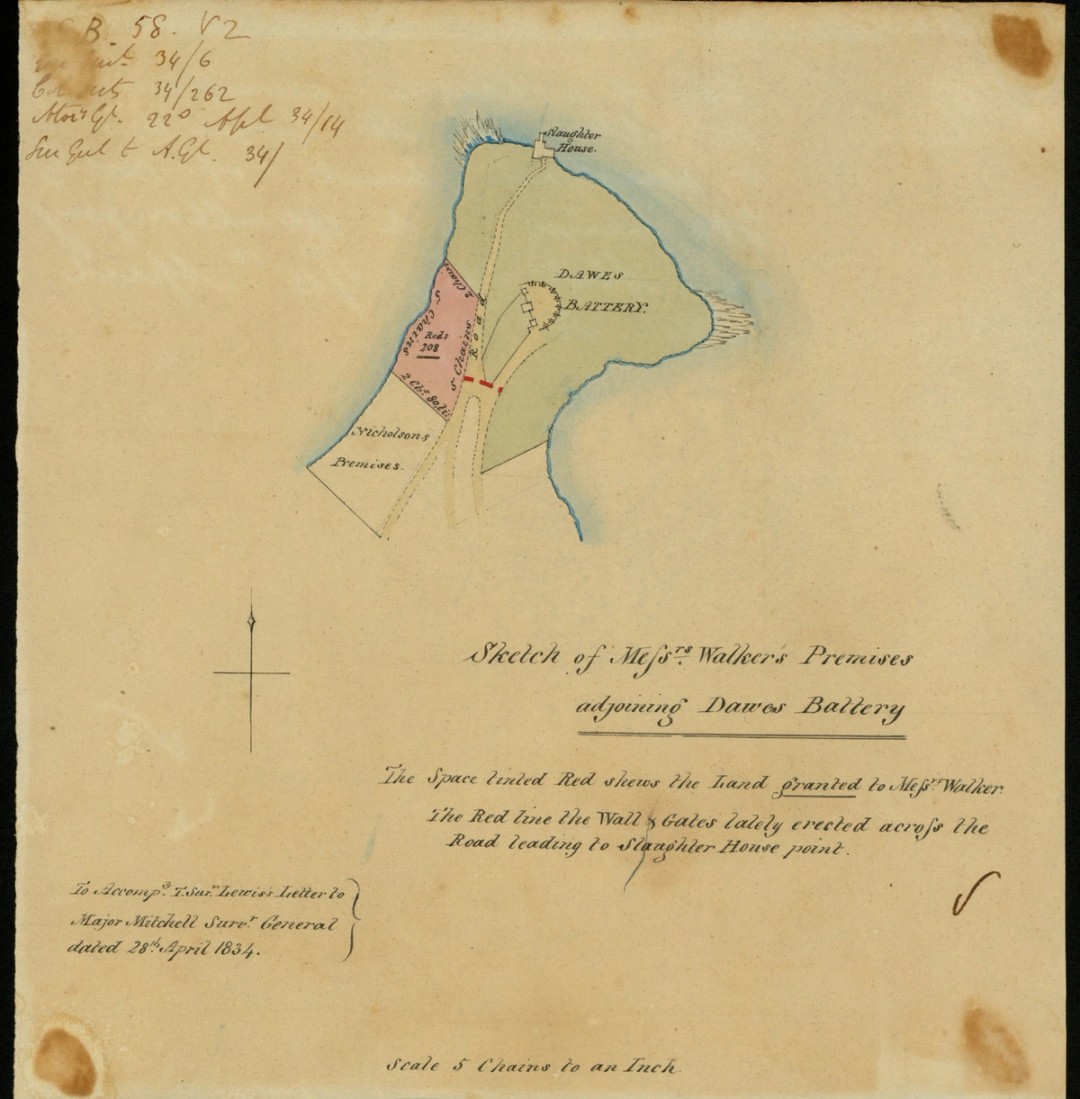 B. 58. V2
34/6
34/262
22 Apl 34/14
34/
Slaughter
House.
DAWES
BATTERY.
Road
2 Chains
5 Chains
5 Chains
Rods
208
2 Chs
Nicholsons
Premises.
Sketch of Messrs. Walker's Premises
adjoining Dawes Battery
The Space tinted Red shews the Land granted to Messrs. Walker.
The Red line the Wall & Gates lately erected across the
Road leading to Slaughter House point.
To Accompy. T. Survr. Lewis's Letter to
Major Mitchell Survr. General
dated 28th. April 1834.
Scale 5 Chains to an Inch.